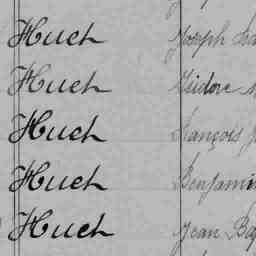 Huet Joseph
Huet Isidore
Huet François J
Huet Benjamin
Huet Jean Bap